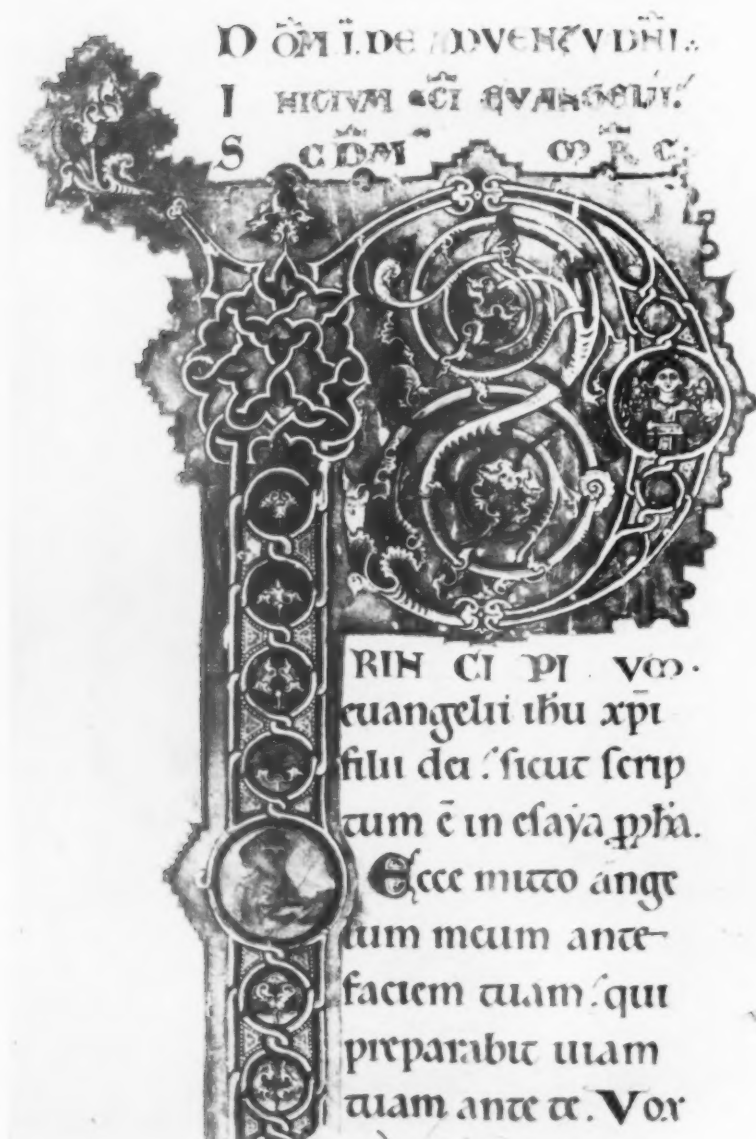 DOM̄ I. DE ADVENTV DN̄I.
INICIVM SC̄I EVANGELII.
SCD̄M MR̄C.
P
RIN CI PI VM.
euangelii ih̄u xp̄i
filii dei : sicut scrip
tum ē in esaya pph̄a.
Ecce mitto ange
lum meum ante
faciem tuam : qui
preparabit uiam
tuam ante te. Vox